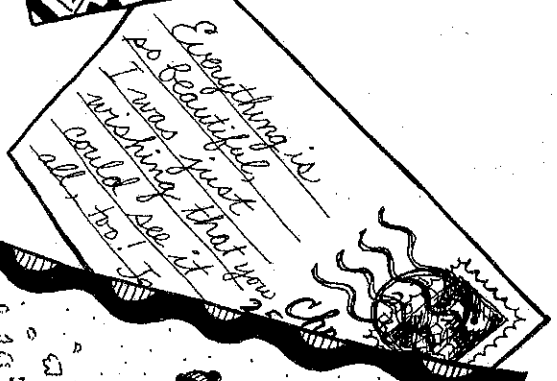 Everything is
so beautiful,
I was just
wishing that you
could see it
all, too!